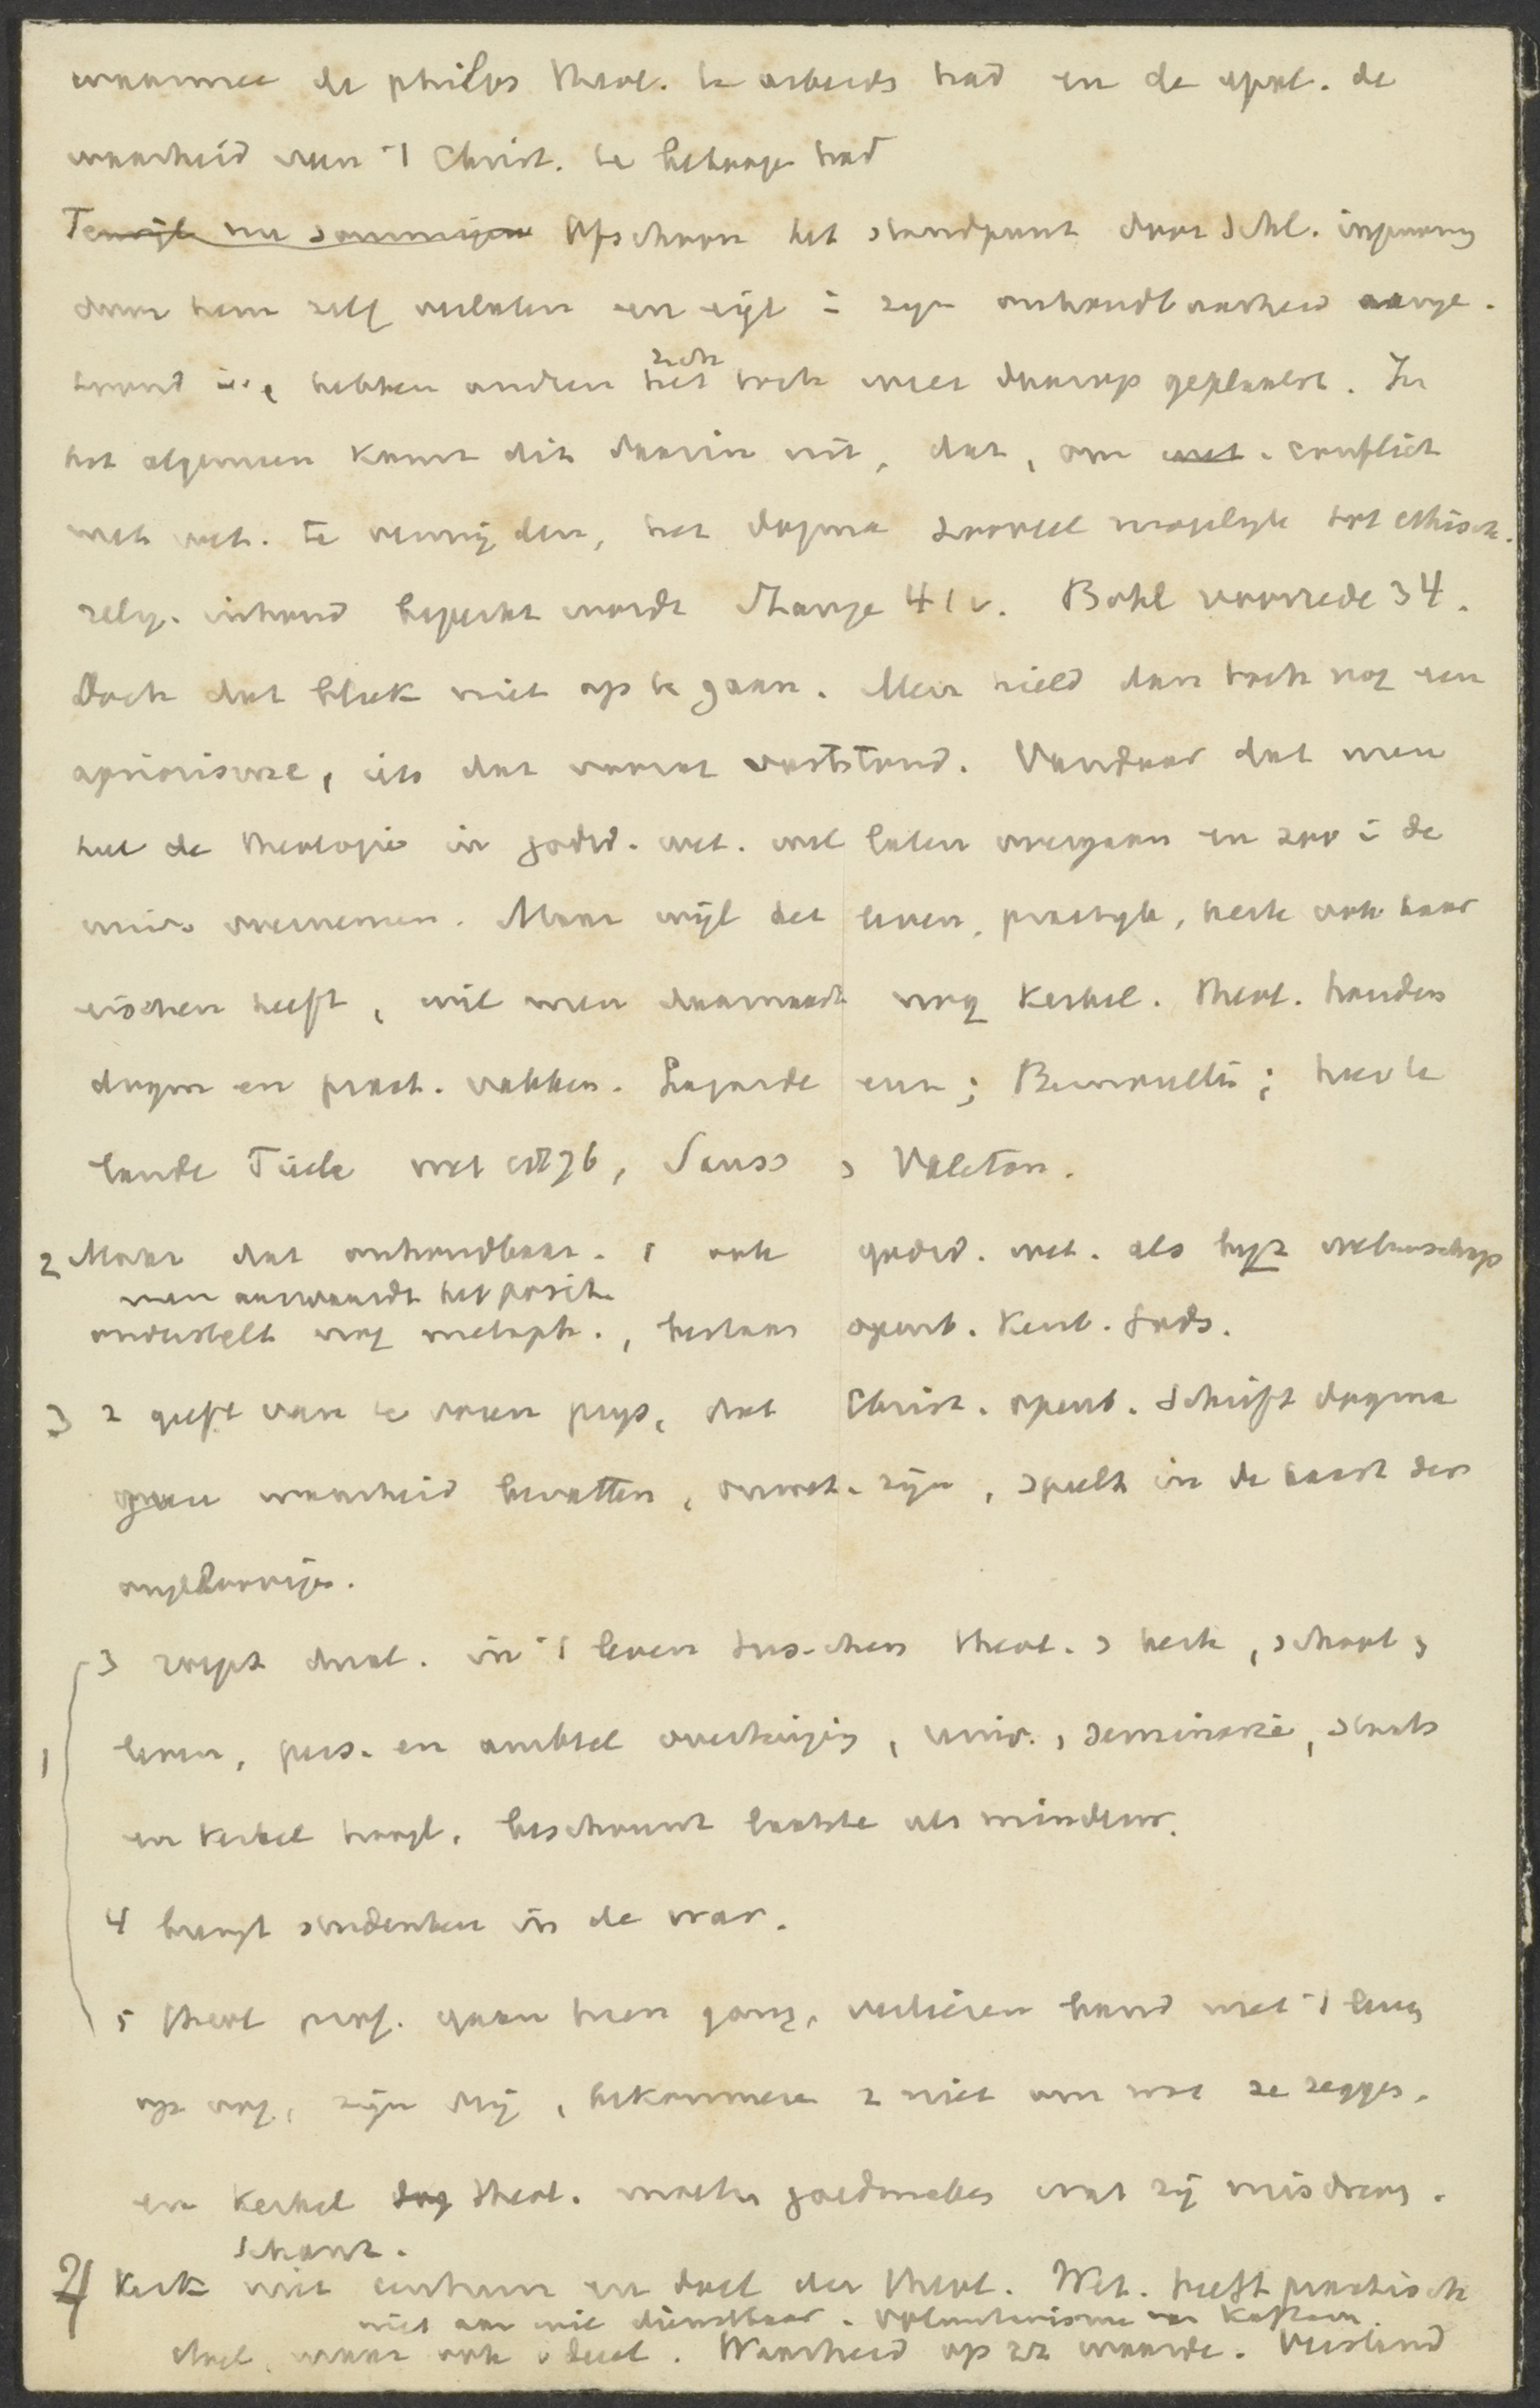 waarmee de philos theol. te arbeids had en de apol. de
waarheid van 't Christ. te betoogen had
Terwijl nu sommigen Ofschoon het standpunt door Schl. ingenomen
door hem zelf verlaten en zijn onhoudbaarheid aange-
toond is, hebben anderen zich toch weer daarop geplaatst. In
het algemeen komt dit daarin uit, dat, om met conflict
met wet. te vermijden, het dogma zooveel mogelijk tot ethisch.
relig. inhoud beperkt wordt Stange 41v. Bohl voorrede 34.
Doch dat bleek niet op te gaan. Men hield dan toch nog een
apriorisme, iets dat vooraf vaststond. Vandaar dat men
de theologie in godsd. wet. wil laten overgaan en zoo i de
univ. overnemen. Maar wijl het leven, practijk, kerk ook haar
eischen heeft, wil men daarnaast nog kerkel. theol. houden
dogm en pract. vakken. Lagarde enz; Bernoulli; hier te
lande Tiele wet 1876, Sauss , Valeton.
2 Maar dat onhoudbaar. 1 ook godsd. wet. als wetenschap
men aanvaardt het posit.
onderstelt nog metaph., bestaan openb. kenb. Gods.
3 2 geeft van te voren prijs, dat Christ. openb. Schrift dogma
geen waarheid bevatten, onwet. zijn, speelt in de kaart der
ongeloovigen.
3 roept dual. in 't leven tusschen theol. , kerk, school ,
leven, pers. en ambtel overtuiging, univ. , seminarie, staats
en kerkel hoogl. beschouwt laatste als mindere.
1
4 brengt studenten in de war.
5 theol prof. gaan hun gang, verliezen band met 't leven
op, zijn vrij, bekommeren z niet om wat ze zeggen.
en kerkel dog theol. moeten goedmaken wat zij misdreven.
Schanz.
4 Kerk niet centrum en doel der theol. Wet. heeft practisch
niet aan wil dienstbaar. Voluntarisme van Kaftan.
doel, maar ook ideal. Waarheid op zz waarde. Verstand